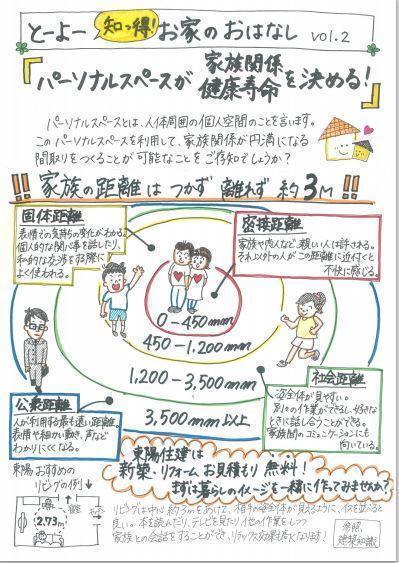 とーよー 知っ得! お家のおはなし vol.2
「パーソナルスペースが 家族関係 健康寿命 を決める!」
パーソナルスペースとは、人体周囲の個人空間のことを言います。
このパーソナルスペースを利用して、家族関係が円満になる
間取りをつくることが可能なことをご存知でしょうか?
!!家族の距離はつかず離れず約3M!!
固体距離
表情での気持ちの変化がわかる。
個人的な関心事を話したり、
私的な交渉をする際に
よく使われる。
密接距離
家族や恋人など、親しい人は許される。
それ以外の人がこの距離に近付くと
不快に感じる。
0-450mm
450-1,200mm
1,200-3,500mm
3,500mm以上
公衆距離
人が利用する最も遠い距離。
表情や細かい動き、声など
わかりにくくなる。
社会距離
全体が見やすい。
別々の作業ができるし、好きな
ときに話しかけることができる。
家族間のコミュニケーションにも
向いている。
東陽住建は
新築・リフォームお見積もり無料!
まずは暮らしのイメージを一緒に作ってみませんか?
東陽おすすめの
リビングの例↓
2.73m
リビングは中心約3mをあけて、相手の全体が見えるように、イスを並べると
良い。本を読んだり、テレビを見たり、他の作業をしつつ
家族との会話をすることができ、リラックス効果も高くなります!
参照
建築知識